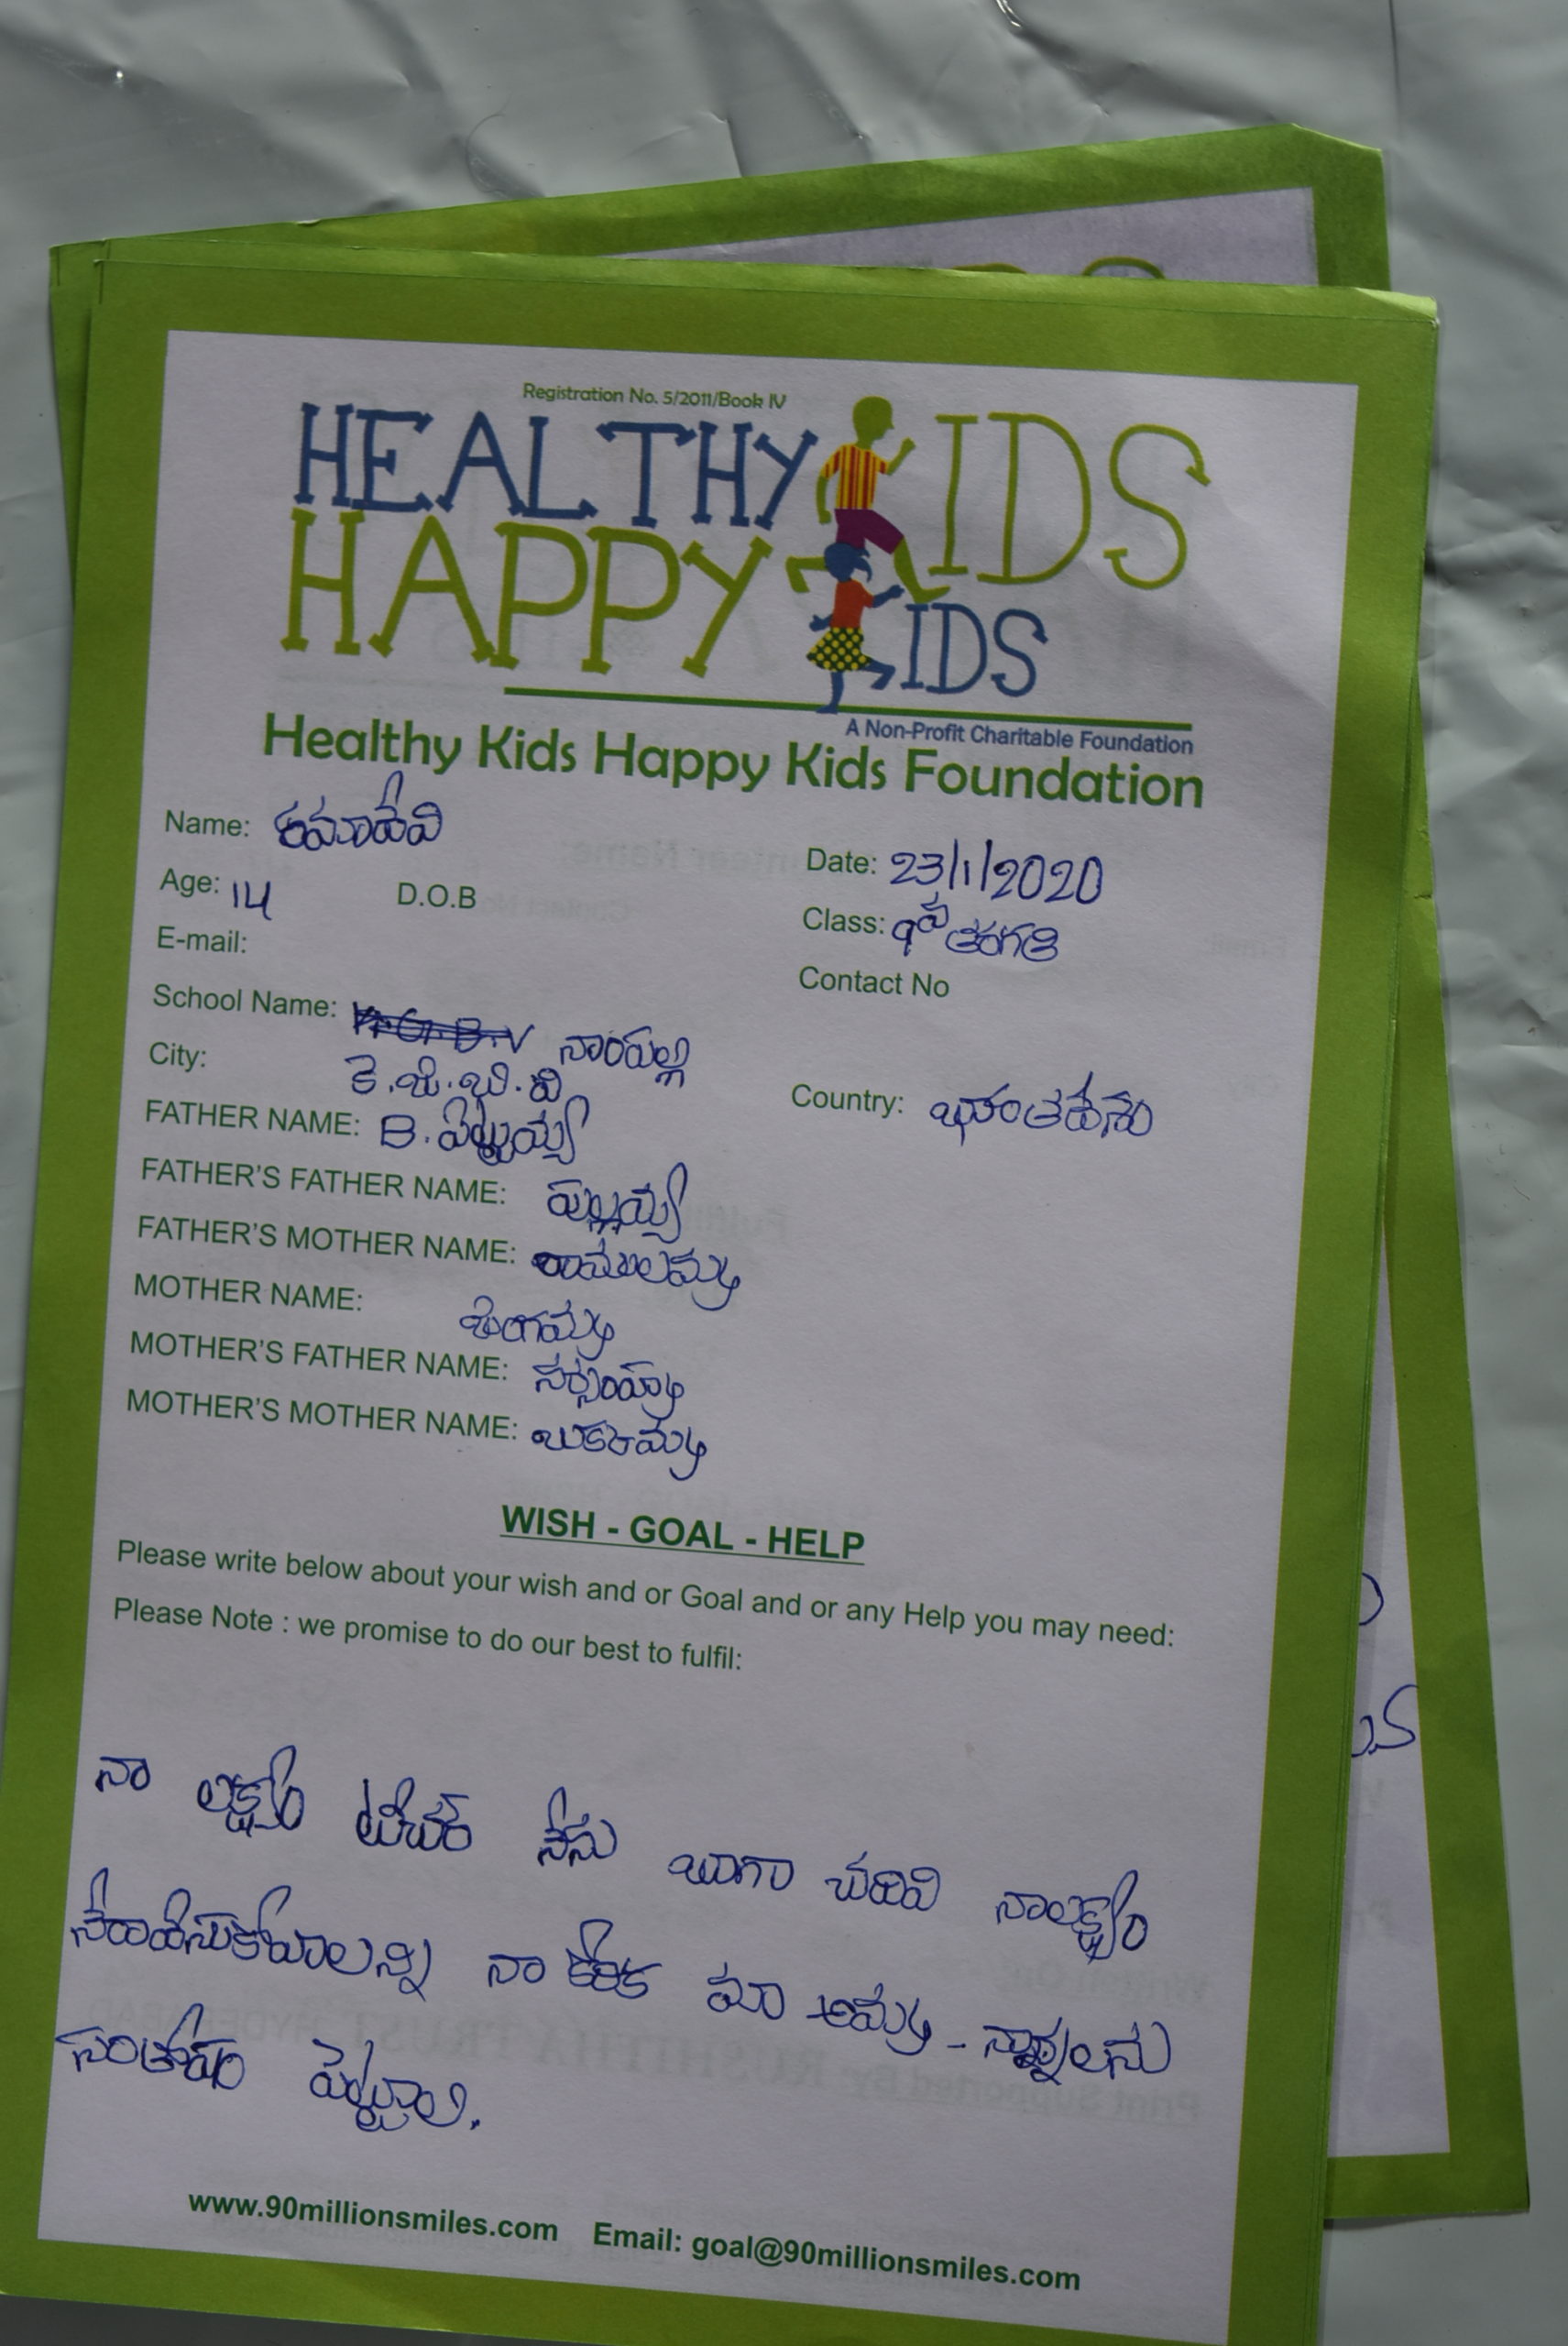 Registration No. 5/2011/Book IV
HEALTHY KIDS
HAPPY KIDS
A Non-Profit Charitable Foundation
Healthy Kids Happy Kids Foundation
Name: ఉమాదేవి
Date: 23/1/2020
Age: 14 D.O.B
Class: 9వ తరగతి
E-mail:
Contact No
School Name: నాంపల్లి
కె.జి.బి.వి
City:
Country: భారతదేశం
FATHER NAME: B.
FATHER'S FATHER NAME: పుల్లయ్య
FATHER'S MOTHER NAME: రాములమ్మ
MOTHER NAME: లింగమ్మ
MOTHER'S FATHER NAME:
MOTHER'S MOTHER NAME:
WISH - GOAL - HELP
Please write below about your wish and or Goal and or any Help you may need:
Please Note : we promise to do our best to fulfil:
నా లక్ష్యం టీచర్ నేను బాగా చదివి నాలక్ష్యం
నేరావేసుకోవాలన్ని నా కోరిక మా అమ్మ - నాన్నలను
సంతోషం పెట్టాలి.
www.90millionsmiles.com Email: goal@90millionsmiles.com